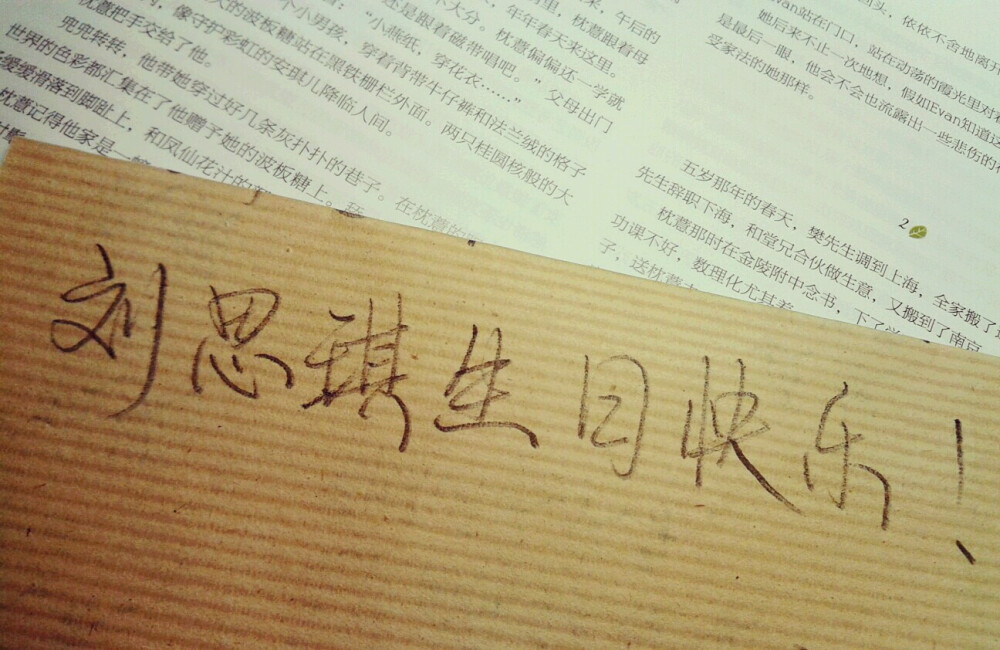 来，午后的
里，枕薏跟着母
年年春天来这里。
不大分。枕薏偏偏还一学就
还是跟着磁带唱吧。”父母出门
“小燕纸，穿花衣……”
个小男孩，穿着背带牛仔裤和法兰绒的格子
的波板糖站在黑铁栅栏外面。两只桂圆核般的大
，像守护彩虹的安琪儿降临人间。
枕薏把手交给了他。
兜兜转转，他带她穿过好几条灰扑扑的巷子。在枕薏的
世界的色彩都汇集在了他赠予她的波板糖上。
缓缓滑落到脚趾上，和凤仙花汁的
枕薏记得他家是一
回头，依依不舍地离开
Evan站在门口，站在动荡的霞光里对着
她后来不止一次地想，假如Evan知道这
是最后一眼，他会不会也流露出一些悲伤的
受家法的她那样。
2
五岁那年的春天，樊先生调到上海，全家搬了
先生辞职下海，和堂兄合伙做生意，又搬到了南京
枕薏那时在金陵附中念书，下了学
功课不好，数理化尤其差
子，送枕薏
刘思琪生日快乐！